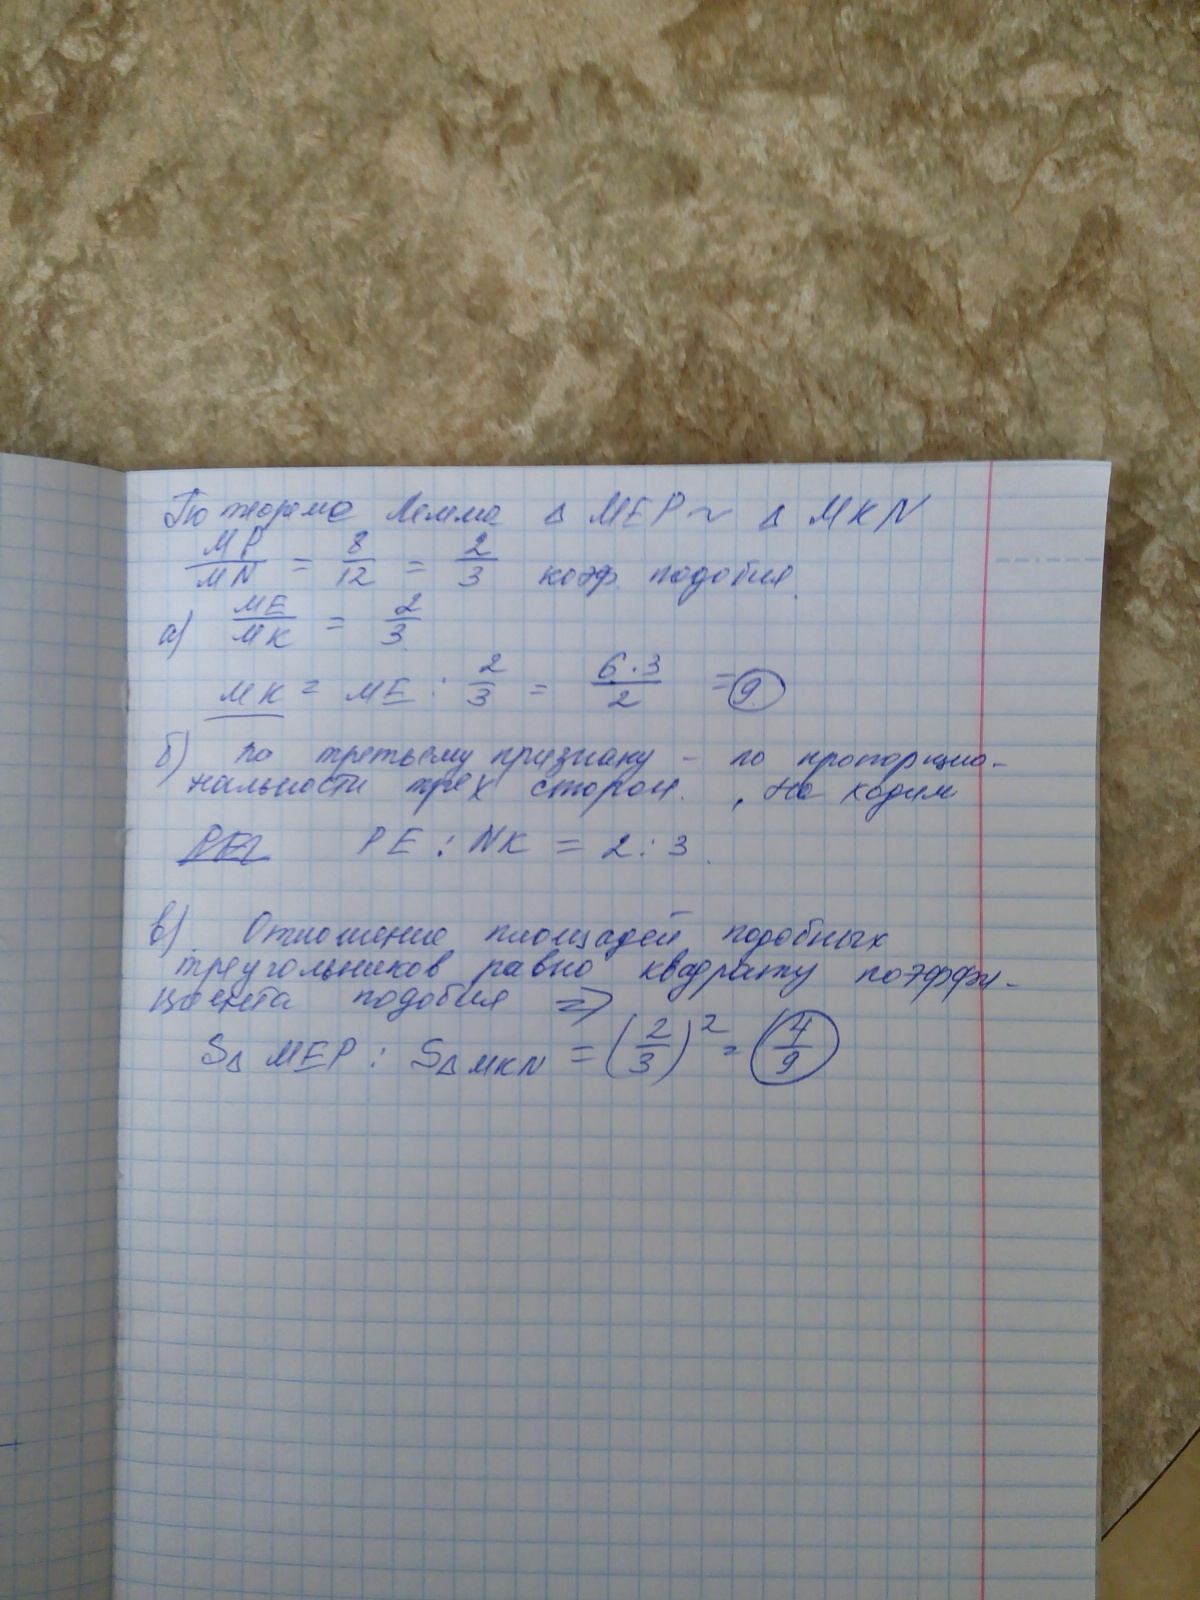 По теореме Лемма Δ MEP ~ Δ MKN
MP/MN = 8/12 = 2/3 коэф. подобия.
а) ME/MK = 2/3.
MK = ME : 2/3 = 6·3/2 = 9.
б) по третьему признаку – по пропорцио-
нальности трех сторон. , на ходим
PE : NK = 2 : 3.
в) Отношение площадей подобных
треугольников равно квадрату коэффи-
циента подобия =>
SΔ MEP : SΔ MKN = (2/3)² = 4/9